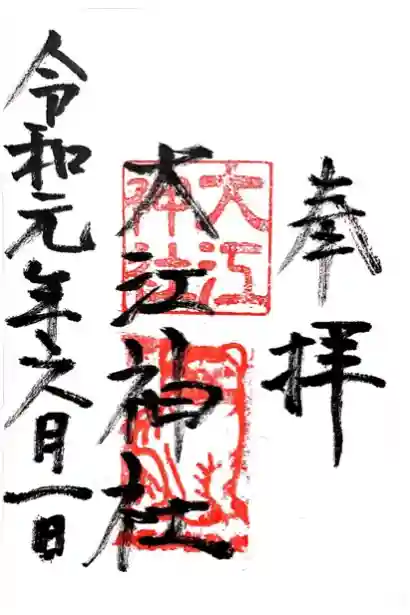 奉拝
大江神社
大江
神社
令和元年六月一日